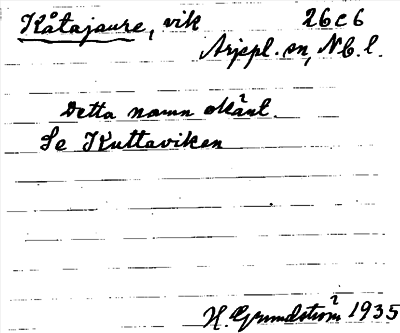 Kåtajaure, vik 26c6
Arjepl. sn, Nb. l.
Detta namn okänt.
Se Kuttaviken
H. Grundström 1935